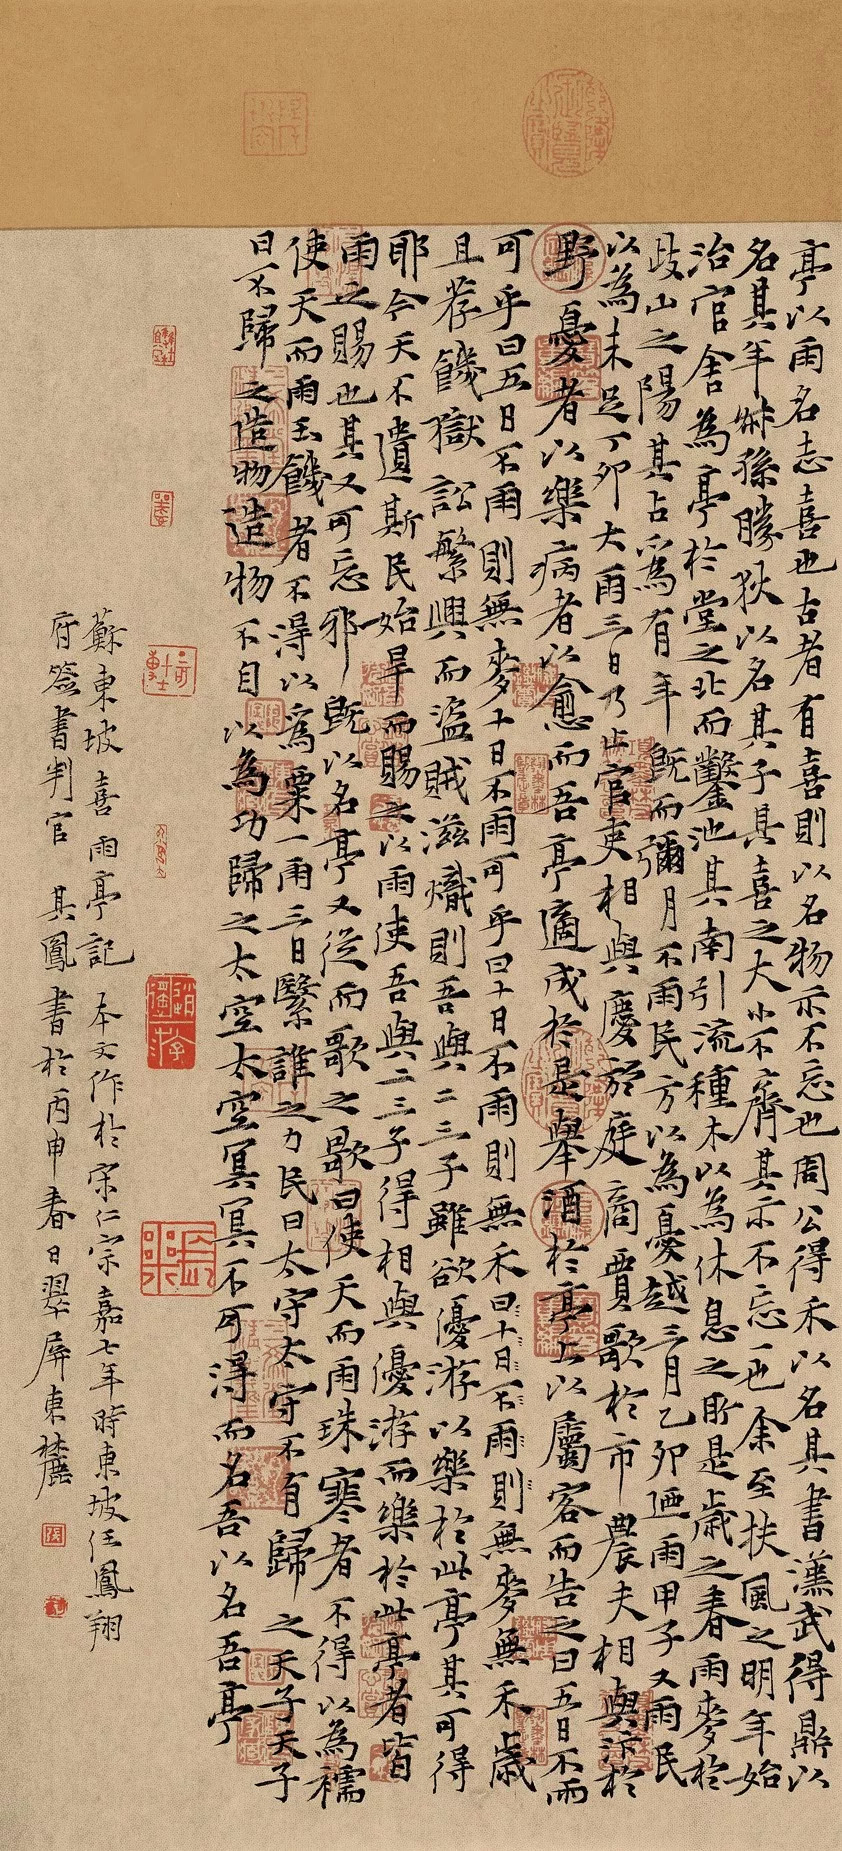 亭以雨名志喜也古者有喜則以名物示不忘也周公得禾以名其書漢武得鼎以
名其年叔孫勝狄以名其子其喜之大小不齊其示不忘一也余至扶風之明年始
治官舍為亭於堂之北而鑿池其南引流種木以為休息之所是歲之春雨麥於
岐山之陽其占為有年既而彌月不雨民方以為憂越三月乙卯迺雨甲子又雨民
以為未足丁卯大雨三日乃止官吏相與慶於庭商賈歌於市農夫相與忭於
野憂者以樂病者以愈而吾亭適成於是舉酒於亭上以屬客而告之曰五日不雨
可乎曰五日不雨則無麥十日不雨可乎曰十日不雨則無禾曰十日不雨則無麥無禾歲
且荐饑獄訟繁興而盜賊滋熾則吾與二三子雖欲優游以樂於此亭其可得
耶今天不遺斯民始旱而賜之以雨使吾與二三子得相與優游而樂於此亭者皆
雨之賜也其又可忘邪既以名亭又從而歌之歌曰使天而雨珠寒者不得以為襦
使天而雨玉饑者不得以為粟一雨三日繄誰之力民曰太守太守不有歸之天子天子
曰不歸之造物造物不自以為功歸之太空太空冥冥不可得而名吾以名吾亭
蘇東坡喜雨亭記 本文作於宋仁宗嘉七年時東坡任鳳翔
府簽書判官 其鳳書於丙申春日翠屏東麓